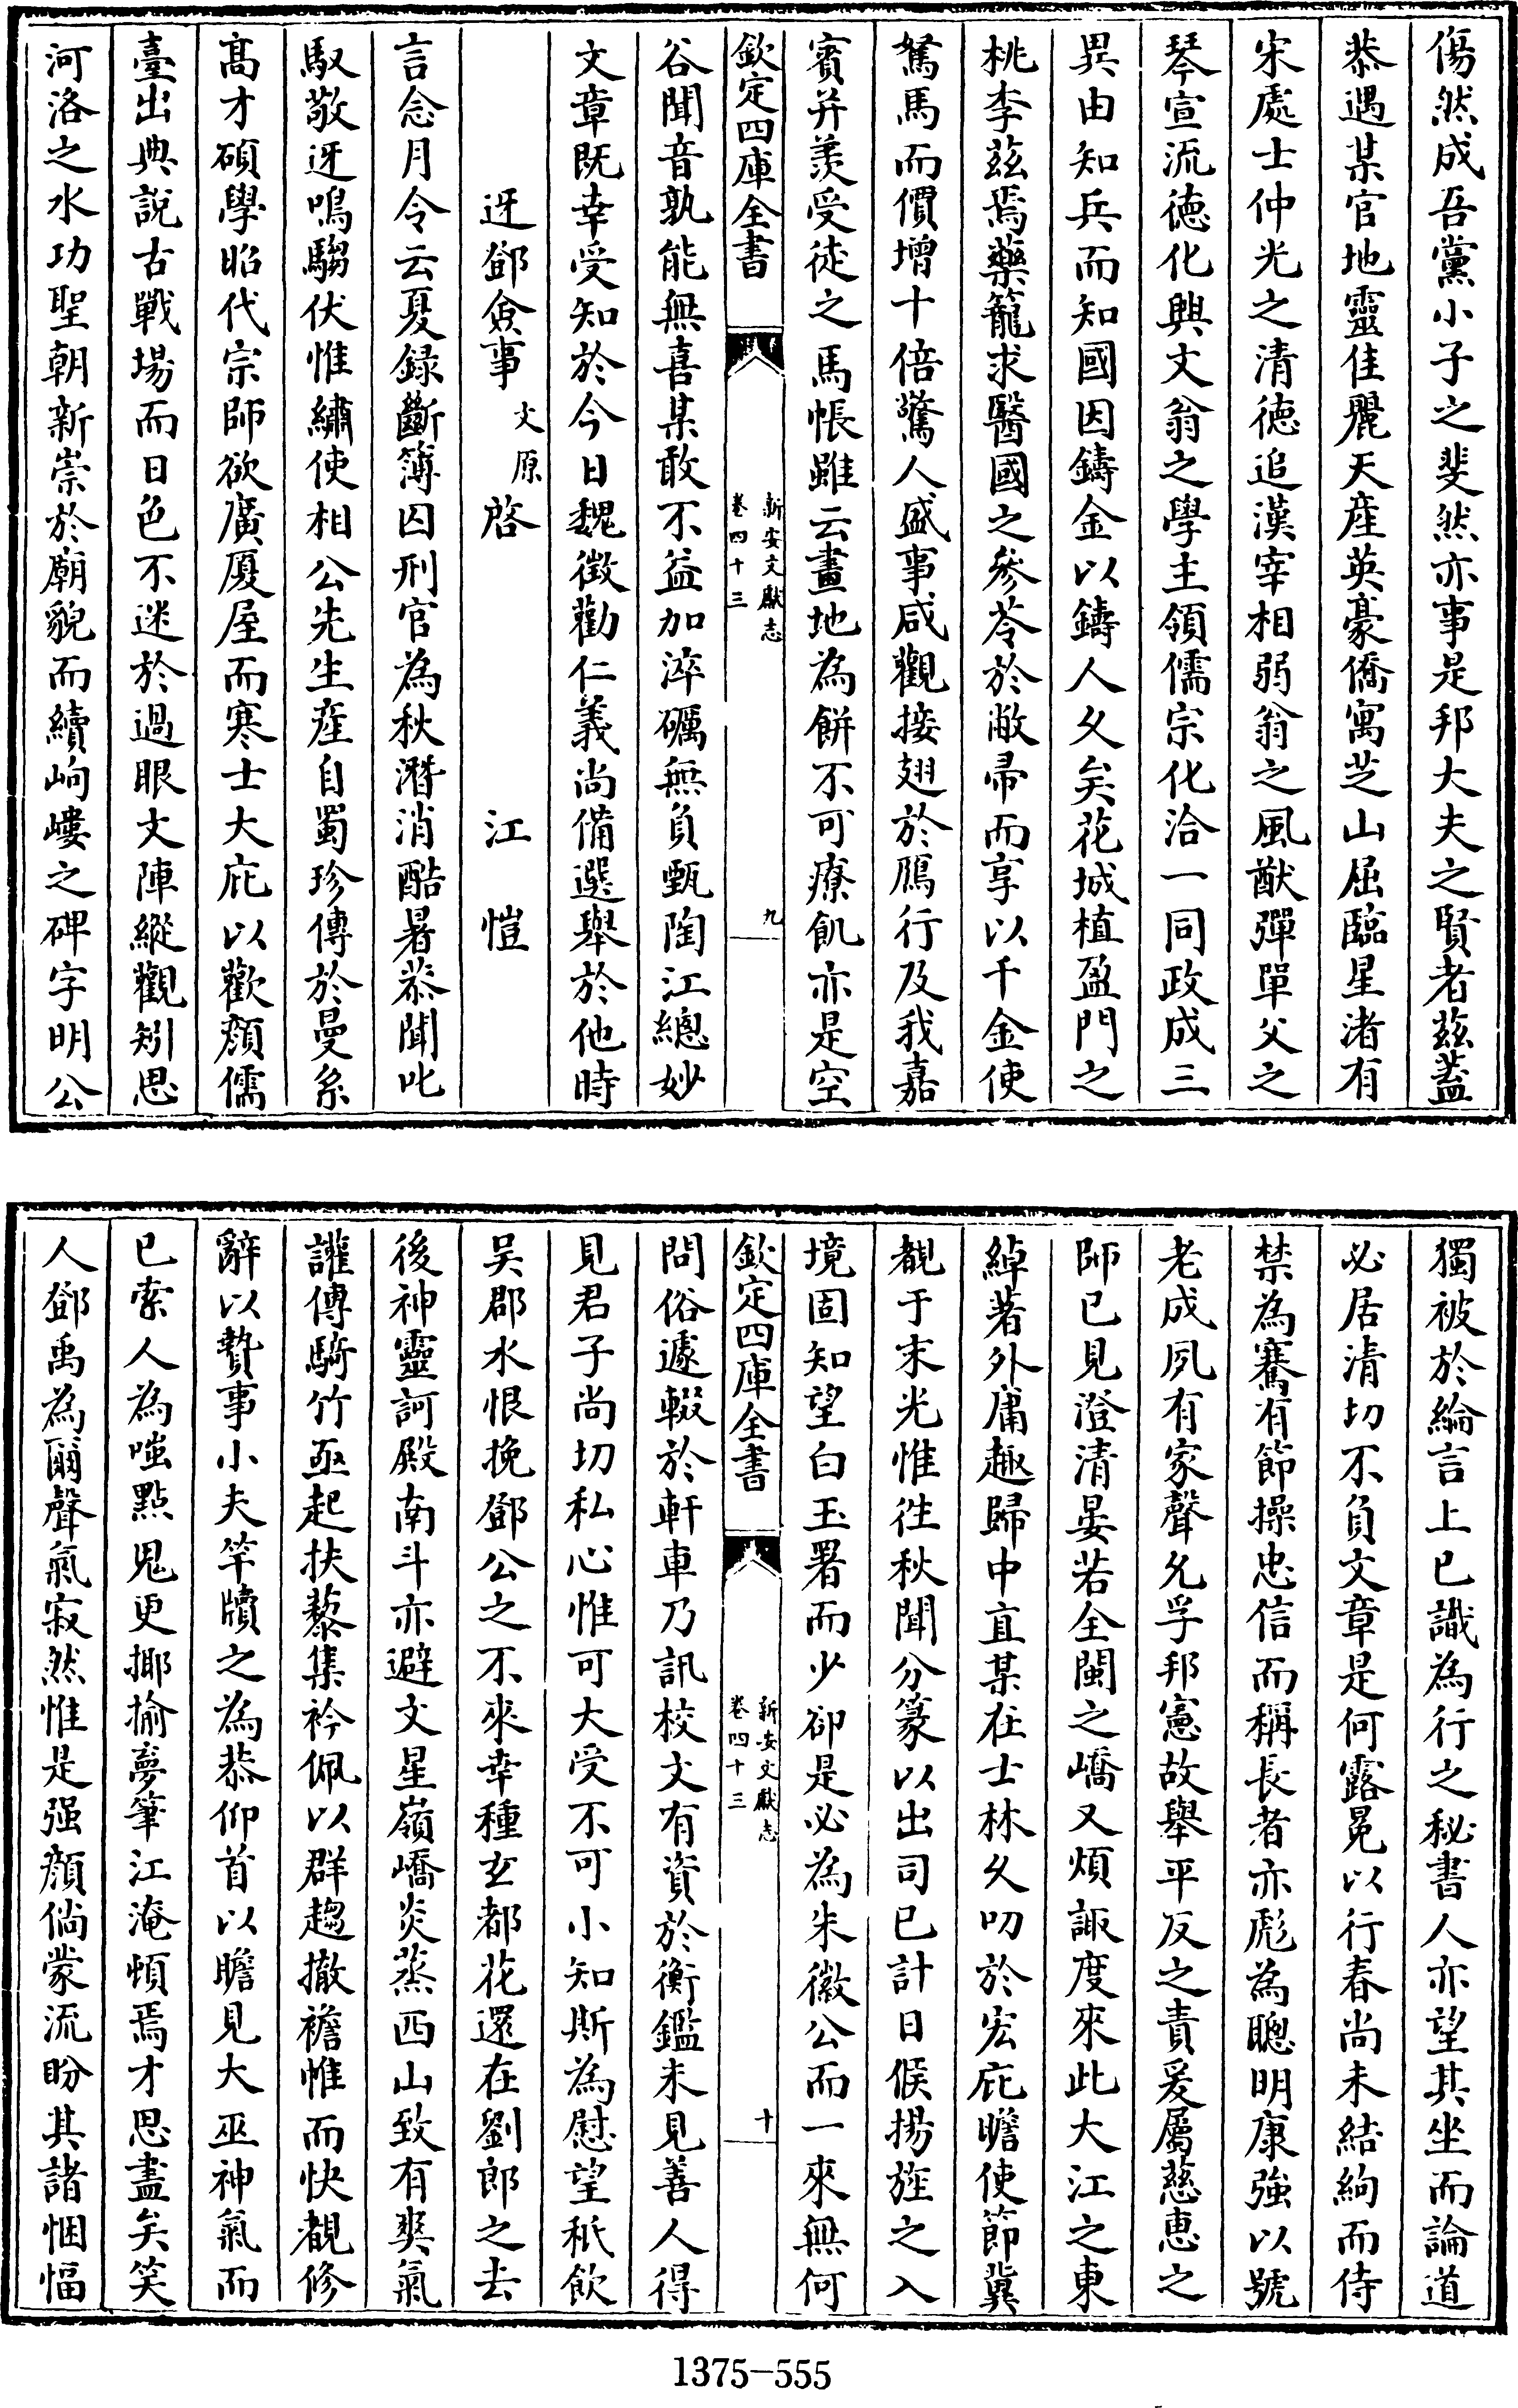 傷然成吾黨小子之斐然亦事是邦大夫之賢者茲蓋
恭遇某官地靈佳麗天産英豪僑寓芝山屈臨星渚有
宋處士仲光之清徳追漢宰相弱翁之風猷彈單父之
琴宣流徳化興文翁之學主領儒宗化洽一同政成三
異由知兵而知國因鑄金以鑄人久矣花城植盈門之
桃李茲焉藥籠求醫國之參苓於敝帚而享以千金使
駑馬而價增十倍驚人盛事咸觀接翅於鴈行及我嘉
賓并羨受徒之馬帳雖云畫地為餅不可療飢亦是空
欽定四庫全書
新安文獻志
卷四十三
九
谷聞音孰能無喜某敢不益加淬礪無負甄陶江總妙
文章既幸受知於今日魏徵勸仁義尚備選舉於他時
迓鄧僉事文原啓 江愷
言念月令云夏録斷簿囚刑官為秋潛消酷暑恭聞叱
馭敬迓鳴騶伏惟繡使相公先生産自蜀珍傳於曼系
髙才碩學昭代宗師欲廣厦屋而寒士大庇以歡顔儒
臺出典説古戰場而日色不迷於過眼文陣縱觀矧思
河洛之水功聖朝新崇於廟貌而續岣嶁之碑字明公
獨被於綸言上已識為行之秘書人亦望其坐而論道
必居清切不負文章是何露冕以行春尚未結絢而侍
禁為騫有節操忠信而稱長者亦彪為聰明康強以號
老成夙有家聲允孚邦憲故舉平反之責爰屬慈惠之
師已見澄清晏若全閩之嶠又煩諏度來此大江之東
綽著外庸趣歸中直某在士林久叨於宏庇瞻使節冀
覩于末光惟徃秋聞分篆以出司已計日候揚旌之入
境固知望白玉署而少卻是必為朱徽公而一來無何
欽定四庫全書
新安文獻志
卷四十三
十
問俗遽輟於軒車乃訊校文有資於衡鑑未見善人得
見君子尚切私心惟可大受不可小知斯為慰望秖飲
吴郡水恨挽鄧公之不來幸種玄都花還在劉郎之去
後神靈訶殿南斗亦避文星嶺嶠炎蒸西山致有爽氣
讙傳騎竹亟起扶藜集衿佩以群趨撤襜惟而快覩修
辭以贄事小夫竿牘之為恭仰首以瞻見大巫神氣而
已索人為嗤點鬼更揶揄夢筆江淹頓焉才思盡矣笑
人鄧禹為爾聲氣寂然惟是强顔倘蒙流盼其諸悃愊
1375-555